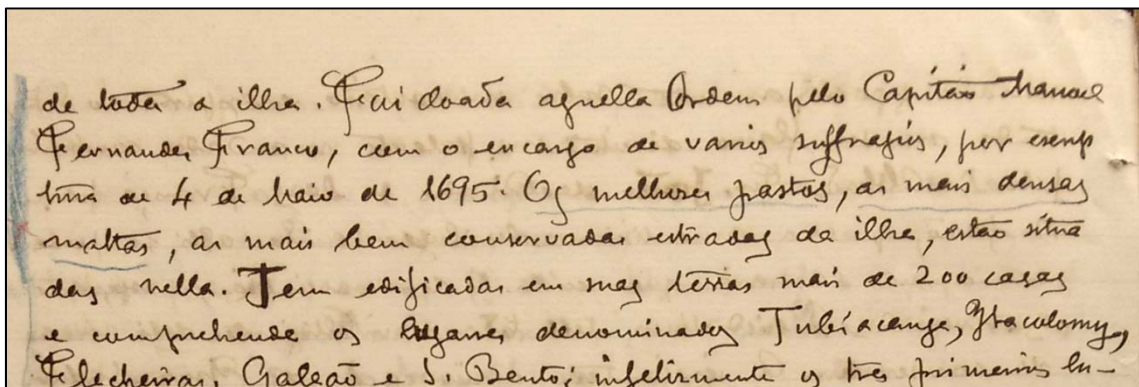 de toda a ilha. Foi doada aquella Ordem pelo Capitão Manoel
Fernandes Franco, com o encargo de varios suffragios, por escrip
tura de 4 de Maio de 1695. Os melhores pastos, as mais densas
mattas, as mais bem conservadas estradas da ilha, estão situa
das nella. Tem edificadas em suas terras mais de 200 casas
e comprehende os lugares denominados Tubiacanga, Itacolomy,
Flecheiras, Galeão e S. Bento; infelizmente os tres primeiros lu-